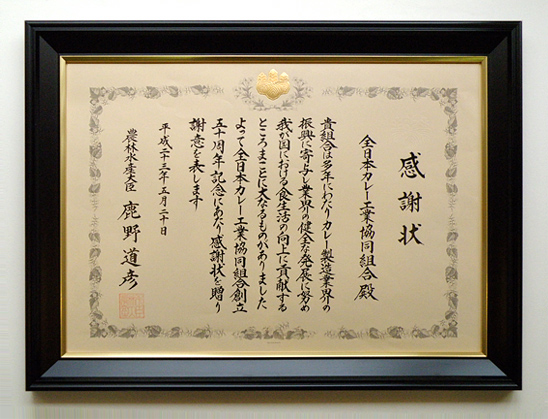 感謝状
全日本カレー工業協同組合殿
貴組合は多年にわたりカレー製造業界の
振興に寄与し業界の健全な発展に努め
我が国における食生活の向上に貢献する
ところまことに大なるものがありました
よって全日本カレー工業協同組合創立
五十周年記念にあたり感謝状を贈り
謝意を表します
平成二十三年五月二十日
農林水産大臣 鹿野道彦